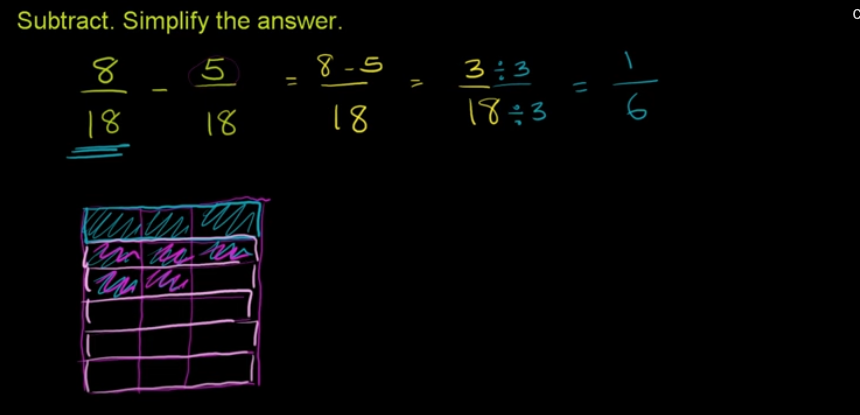 Subtract. Simplify the answer.
8/18 - 5/18 = 8-5/18 = 3÷3/18÷3 = 1/6